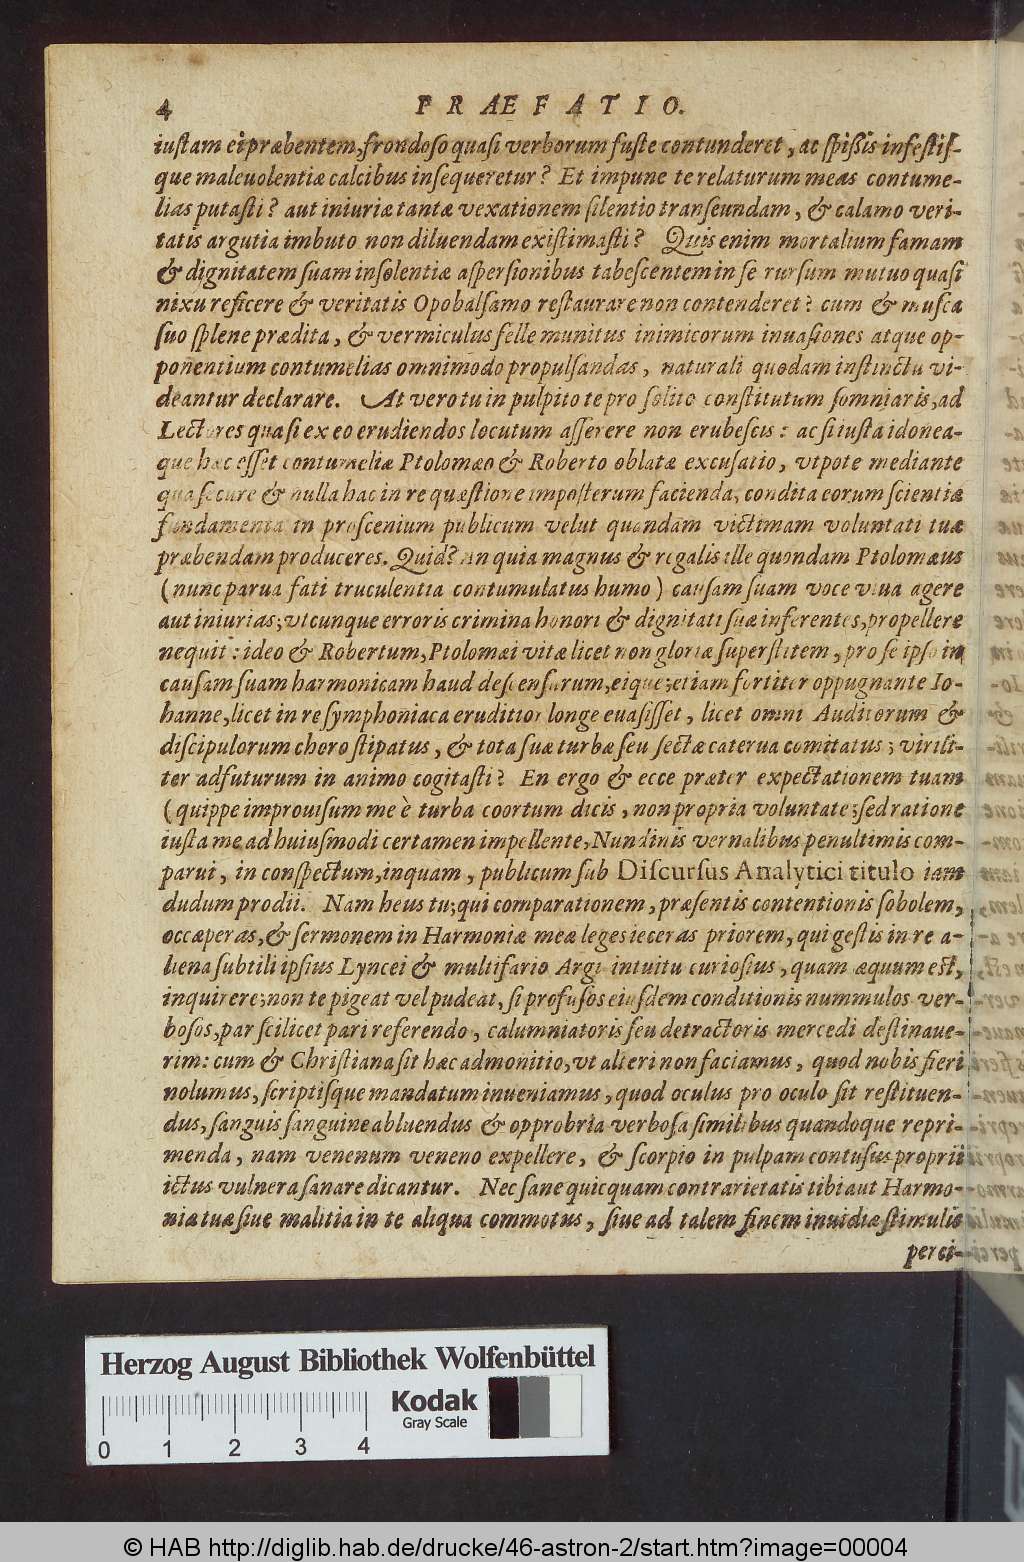 4 PRÆFATIO.
iustam ei præbentem, frondoso quasi verborum fuste contunderet, ac spißis infestis-
que maleuolentiæ calcibus insequeretur? Et impune te relaturum meas contume-
lias putasti? aut iniuriæ tantæ vexationem silentio transeundam, & calamo veri-
tatis argutia imbuto non diluendam existimasti? Quis enim mortalium famam
& dignitatem suam insolentiæ aspersionibus tabescentem in se rursum mutuo quasi
nixu reficere & veritatis Opobalsamo restaurare non contenderet? cum & musca
suo splene prædita, & vermiculus felle munitus inimicorum inuasiones atque op-
ponentium contumelias omnimodo propulsandas, naturali quodam instinctu vi-
deantur declarare. At vero tu in pulpito te pro solito constitutum somniaris, ad
Lectores quasi ex eo erudiendos locutum asserere non erubescis: ac si iusta idonea-
que hæc esset contumeliæ Ptolomæo & Roberto oblatæ excusatio, vtpote mediante
qua secure & nulla hac in re quæstione imposterum facienda, condita eorum scientiæ
fundamenta in proscenium publicum velut quandam victimam voluntati tuæ
præbendam produceres. Quid? An quia magnus & regalis ille quondam Ptolomæus
(nunc parua fati truculentia contumulatus humo) causam suam voce viua agere
aut iniurias; vtcunque erroris crimina honori & dignitati suæ inferentes, propellere
nequit: ideo & Robertum, Ptolomæi vitæ licet non gloriæ superstitem, pro se ipso in
causam suam harmonicam haud descensurum, eique; etiam fortiter oppugnante Io-
hanne, licet in re symphoniaca eruditior longe euasisset, licet omni Auditorum &
discipulorum choro stipatus, & tota suæ turbæ seu sectæ caterua comitatus; virili-
ter adfuturum in animo cogitasti? En ergo & ecce præter expectationem tuam
(quippe improuisum me è turba coortum dicis, non propria voluntate; sed ratione
iusta me ad huiusmodi certamen impellente, Nundinis vernalibus penultimis com-
parui, in conspectum, inquam, publicum sub Discursus Analytici titulo iam
dudum prodii. Nam heus tu; qui comparationem, præsentis contentionis sobolem,
occæperas, & sermonem in Harmoniæ meæ leges ieceras priorem, qui gestis in re a-
liena subtili ipsius Lyncei & multifario Argi intuitu curiosius, quam æquum est,
inquirere; non te pigeat vel pudeat, si profusos eiusdem conditionis nummulos ver-
bosos, par scilicet pari referendo, calumniatoris seu detractoris mercedi destinaue-
rim: cum & Christiana sit hæc admonitio, vt alteri non faciamus, quod nobis fieri
nolumus, scriptisque mandatum inueniamus, quod oculus pro oculo sit restituen-
dus, sanguis sanguine abluendus & opprobria verbosa similibus quandoque repri-
menda, nam venenum veneno expellere, & scorpio in pulpam contusus proprii
ictus vulnera sanare dicantur. Nec sane quicquam contrarietatis tibi aut Harmo-
niæ tuæ siue malitia in te aliqua commotus, siue ad talem finem inuidiæ stimulis
perci-
Herzog August Bibliothek Wolfenbüttel
Kodak
Gray Scale
0 1 2 3 4
© HAB http://diglib.hab.de/drucke/46-astron-2/start.htm?image=00004